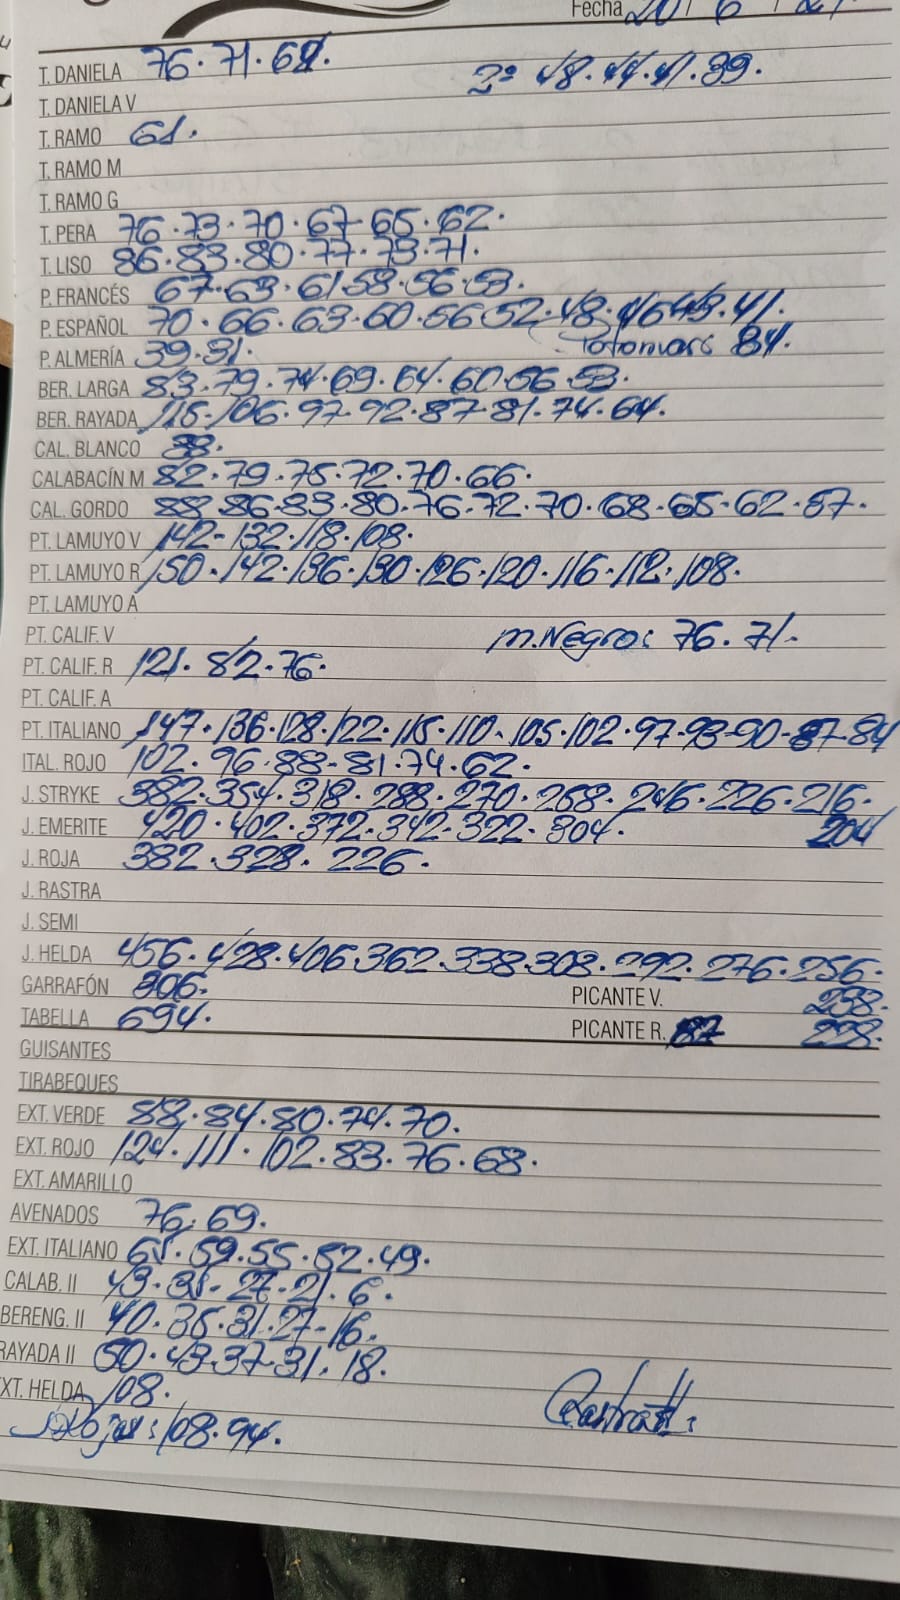 Fecha 20/6/
T. DANIELA 76.71.69. 2º 48.44.41.39.
T. DANIELA V
T. RAMO 61.
T. RAMO M
T. RAMO G
T. PERA 76.73.70.67-65.62.
T. LISO 86.83.80.77.73.71.
P. FRANCÉS 67.63.61.58.56.53.
P. ESPAÑOL 70.66.63.60.56.52.48.46.43.41.
P. ALMERÍA 39.31. 84.
BER. LARGA 83.79.74.69.64.60.56.53.
BER. RAYADA 115.106.97.92.87-81.74.64.
CAL. BLANCO
CALABACÍN M 82.79.75.72.70.66.
CAL. GORDO 88.86.83.80.76.72.70.68.65.62.57.
PT. LAMUYO V 142-132.118.108.
PT. LAMUYO R 150.142.136.130.126.120.116.112.108.
PT. LAMUYO A
PT. CALIF. V M.Negro: 76.71.
PT. CALIF. R 121.82.76.
PT. CALIF. A
PT. ITALIANO 147.136.128.122.115.110.105.102.97-93-90-87-84
ITAL. ROJO 102.96.88-81.74.62.
J. STRYKE 382.354.318.288.270.258.246.226.216.
J. EMERITE 420.402.372.342.322.304. 204
J. ROJA 382.328.226.
J. RASTRA
J. SEMI
J. HELDA 456.428.406.362.338.308.292.276.256.
GARRAFÓN 306. PICANTE V. 238.
TABELLA 694. PICANTE R. 87 228.
GUISANTES
TIRABEQUES
EXT. VERDE 88.84.80.74.70.
EXT. ROJO 124.111.102.83.76.68.
EXT. AMARILLO
AVENADOS 76.69.
EXT. ITALIANO 65.59.55.52.49.
CALAB. II 43.35-27-21.6.
BERENG. II 40.35.31.27-16.
RAYADA II 50.43.37.31.18.
XT. HELDA 108.
108.94.